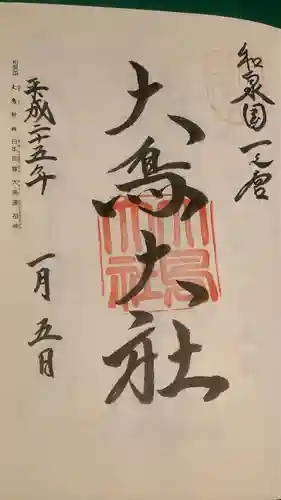 和泉国一之宮
大鳥大社
平成二十五年 一月五日
大鳥大社